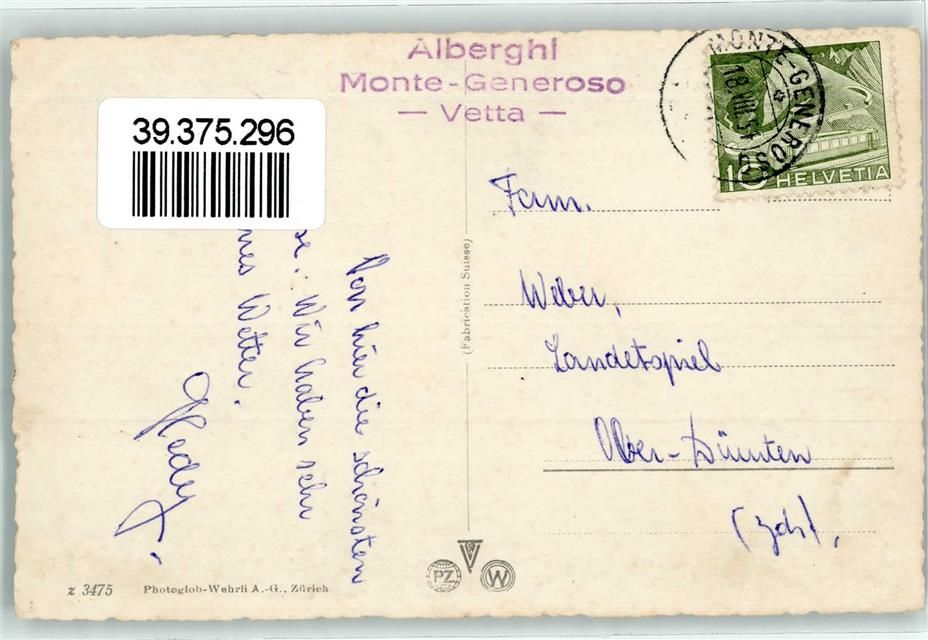 Alberghi
Monte-Generoso
— Vetta —
39.375.296
MONTE-GENEROSO
18.VIII.51
10 HELVETIA
Von hier die schönsten
Wir haben sehr
Wetter.
Hedy.
Fam.
Weber,
Landetspiel
Ober-Dürnten
(Zch).
(Fabrication Suisse)
PZ
W
z 3475 Photoglob-Wehrli A.-G., Zürich